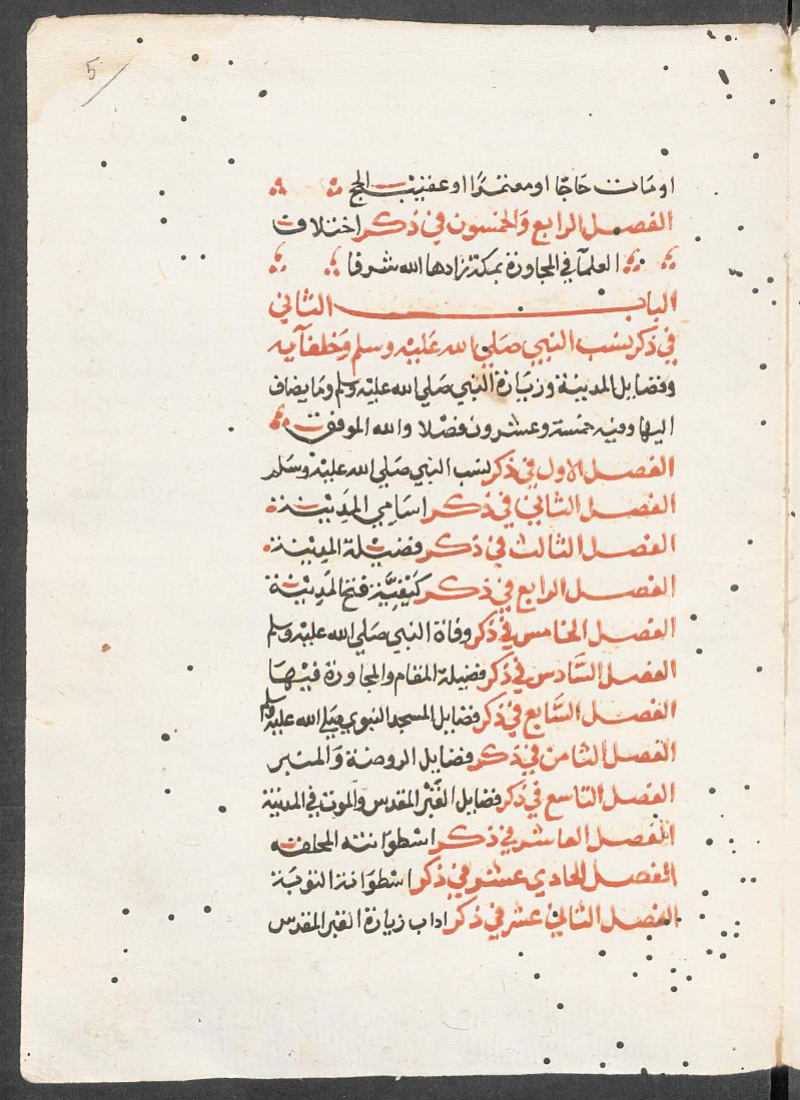 5
او مات حاجّا او معتمرًا او عقيب الحج
الفصل الرابع والخمسون في ذكر اختلاف
العلمآ في المجاورة بمكة زادها الله شرفا
الباب الثاني
في ذكر نسب النبي صلي الله عليه وسلم وخلفآيه
وفضايل المدينة وزيارة النبي صلي الله عليه وسلم وما يضاف
اليها وفيه خمسة وعشرون فصلا والله الموفق
الفصل الاول في ذكر نسب النبي صلي الله عليه وسلم
الفصل الثاني في ذكر اسامي المدينة
الفصل الثالث في ذكر فضيلة المدينة
الفصل الرابع في ذكر كيفيّة فتح المدينة
الفصل الخامس في ذكر وفاة النبي صلي الله عليه وسلم
الفصل السّادس في ذكر فضيلة المقام والمجاورة فيها
الفصل السّابع في ذكر فضايل المسجد النبوي صلي الله عليه وسلم
الفصل الثامن في ذكر فضايل الروضة والمنبر
الفصل التاسع في ذكر فضايل القبر المقدس والموت في المدينة
الفصل العاشر في ذكر اسطوانته المخلقه
الفصل الحادي عشر في ذكر اسطوانة التوبة
الفصل الثاني عشر في ذكر اداب زيارة القبر المقدس